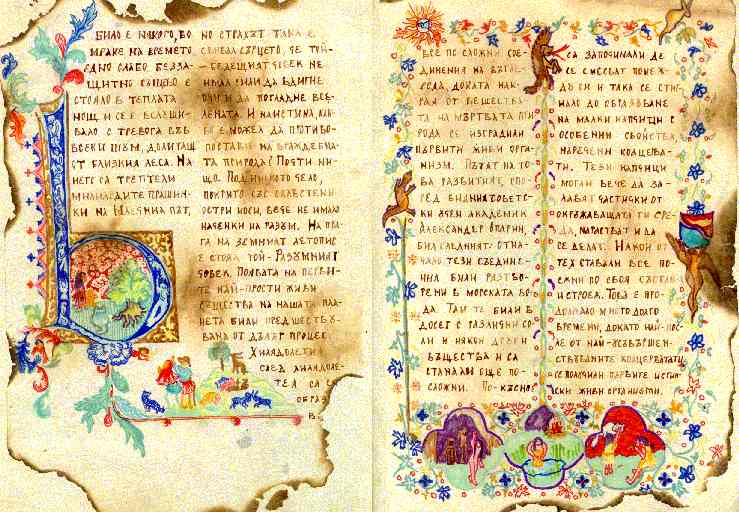 Било е някого, во
мраке на времето
едно слабо безза-
щитно същево е
стояло в теплата
нощ и се е вслуши-
вало с тревога във
всеки шум, долитащ
от близкия леса. На
него са трептели
милиардите прашин-
ки на Млечния път,
но страхът така е
сърцето, че той-
бедещият човек не
имал сили да вдигне
да погледне все-
лената. И наистина, как-
во е можел да противо-
постави на враждебна-
та природа? Почти ни-
що. Под ниското чело,
покрито със сплъстени
остри коси, вече не имало
наченки на разум. На пра-
га на земният летопис
е стоял той- Разумният
човек. Появата на перви-
те най-прости живи
същества на нашата пла-
нета били предшеству-
вана от дълъг процес
Хилядолети
след хилядоле-
тел са се
образ
в
все по сложни сое-
динения на въгле-
рода, докато най-
рая от вещества-
та на мъртвата при-
рода се изградили
първите живи орга-
низми. Пътят на то-
ва развитие, спо-
ред видния советс-
ки учен академик
Александер Опарин,
бил следният: отна-
чало тези съедине-
ния били разтво-
рени в морската во-
да. Там те били в
досег с различни со-
ли и някои други
вещества и са
ставали още по-
сложни. По-късно
са започнали де
се смесват поняж-
ду си и така се стиг-
нало до образоване
на малки капчици с
особени свойства,
наречени коацерва-
ти. Тези капчици
могли вече да за-
лавят частички от
окръжаващата ги сре-
да, нарастват и да
се делат. Някои от
тех ставали все по
сложни по своя състав
и строеж. Това е про-
должало много долго
времени, докато най-пос-
ле от най-усъвършен-
ствуваните коацервати
се получили первите исти-
ски живи организми.